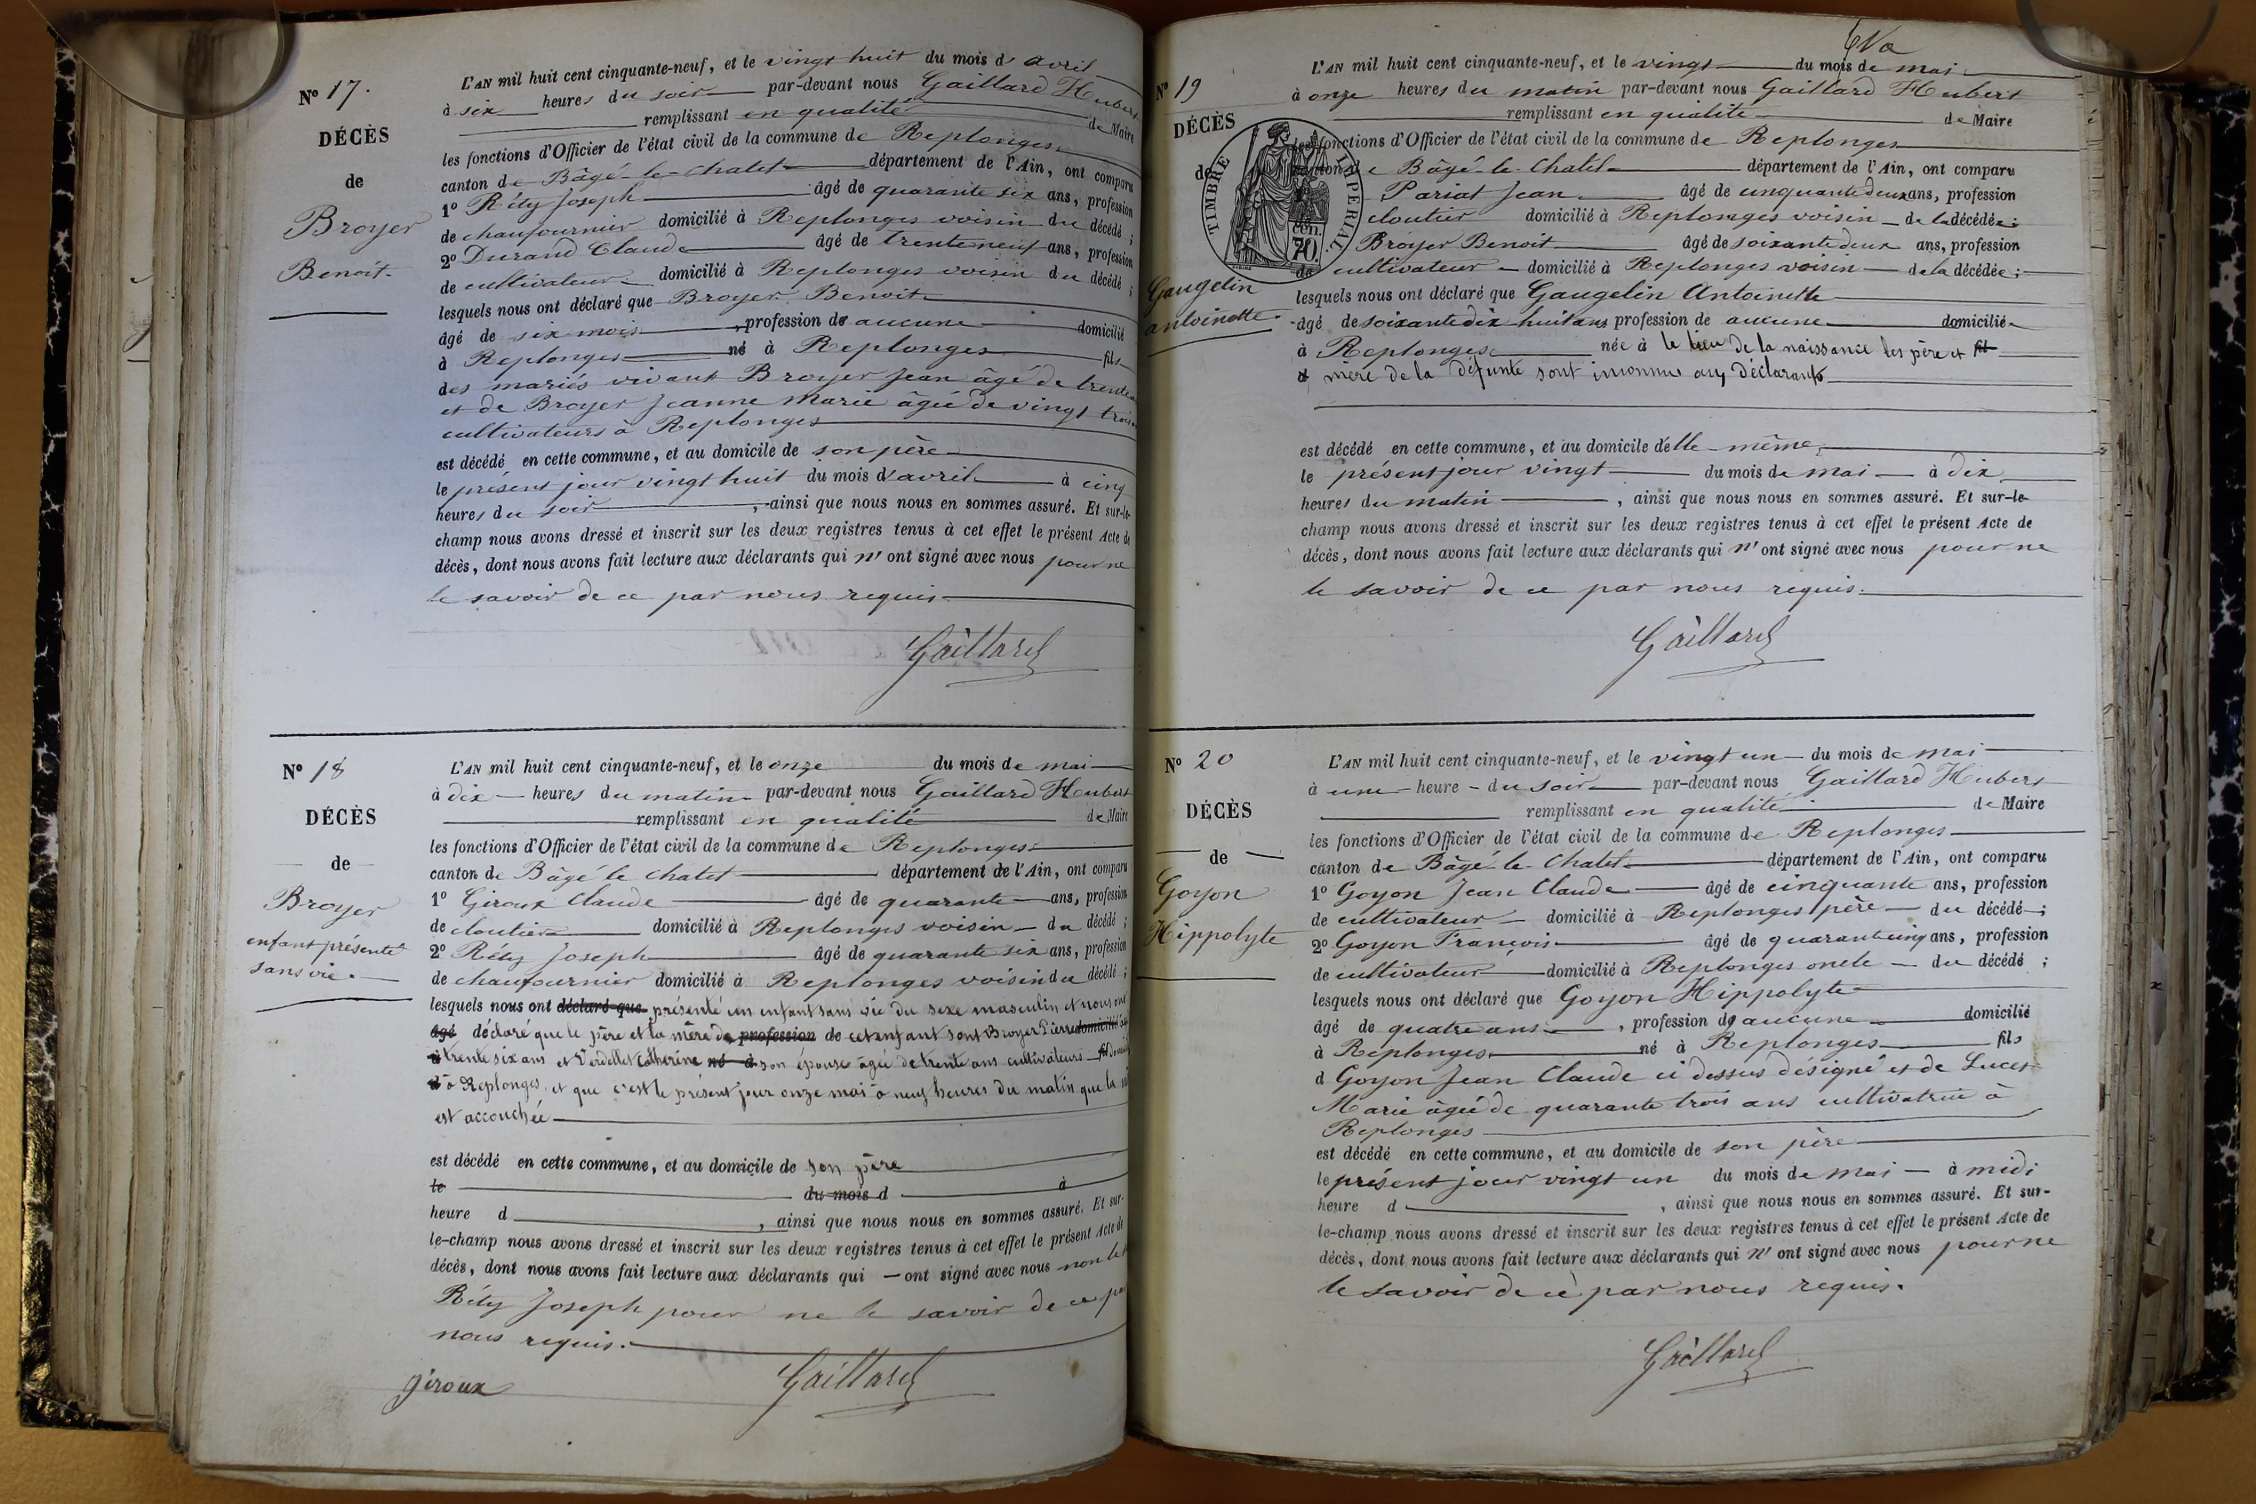 N° 17.
DÉCÈS
de
Broyer
Benoit.
L'AN mil huit cent cinquante-neuf, et le vingt huit du mois d'avril
à six heures du soir par-devant nous Gaillard Hubert
remplissant en qualité de Maire
les fonctions d'Officier de l'état civil de la commune de Replonges
canton de Bâgé-le-Chatel département de l'Ain, ont comparu
1° Réty Joseph âgé de quarante six ans, profession
de chaufournier domicilié à Replonges voisin du décédé ;
2° Durand Claude âgé de trente neuf ans, profession
de cultivateur domicilié à Replonges voisin du décédé ;
lesquels nous ont déclaré que Broyer Benoit
âgé de six mois, profession de aucune domicilié
à Replonges né à Replonges fils
des mariés vivant Broyer Jean âgé de trente
et de Broyer Jeanne Marie âgée de vingt trois
cultivateurs à Replonges
est décédé en cette commune, et au domicile de son père
le présent jour vingt huit du mois d'avril à cinq
heures du soir, ainsi que nous nous en sommes assuré. Et sur-le-
champ nous avons dressé et inscrit sur les deux registres tenus à cet effet le présent Acte de
décès, dont nous avons fait lecture aux déclarants qui n'ont signé avec nous pour ne
le savoir de ce par nous requis.
Gaillard
N° 18
DÉCÈS
de
Broyer
enfant présenté
sans vie.
L'AN mil huit cent cinquante-neuf, et le onze du mois de mai
à dix heures du matin par-devant nous Gaillard Hubert
remplissant en qualité de Maire
les fonctions d'Officier de l'état civil de la commune de Replonges
canton de Bâgé le Chatel département de l'Ain, ont comparu
1° Giroux Claude âgé de quarante ans, profession
de cloutier domicilié à Replonges voisin du décédé ;
2° Réty Joseph âgé de quarante six ans, profession
de chaufournier domicilié à Replonges voisin du décédé ;
lesquels nous ont déclaré que présenté un enfant sans vie du sexe masculin et nous ont
âgé déclaré que le père et la mère de profession de cet enfant sont Broyer Pierre domicilié
à trente six ans et Verdellet Catherine né à son épouse âgée de trente ans cultivateurs fil
d à Replonges, et que c'est le présent jour onze mai à neuf heures du matin que la
est accouchée
est décédé en cette commune, et au domicile de son père
le du mois d à
heure d , ainsi que nous nous en sommes assuré. Et sur-
le-champ nous avons dressé et inscrit sur les deux registres tenus à cet effet le présent Acte de
décès, dont nous avons fait lecture aux déclarants qui ont signé avec nous non le
Réty Joseph pour ne le savoir de ce par
nous requis.
giroux Gaillard
N° 19
DÉCÈS
de
Gaugelin
antoinette.
TIMBRE IMPÉRIAL
CEN.
70.
L'AN mil huit cent cinquante-neuf, et le vingt du mois de mai
à onze heures du matin par-devant nous Gaillard Hubert
remplissant en qualité de Maire
les fonctions d'Officier de l'état civil de la commune de Replonges
canton de Bâgé-le-Chatel département de l'Ain, ont comparu
Pariat Jean âgé de cinquante deux ans, profession
cloutier domicilié à Replonges voisin de la décédée ;
Broyer Benoit âgé de soixante deux ans, profession
de cultivateur domicilié à Replonges voisin de la décédée ;
lesquels nous ont déclaré que Gaugelin Antoinette
âgé de soixante dix huit ans profession de aucune domiciliée
à Replonges née à le lieu de la naissance les père et fil
d mère de la défunte sont inconnus aux déclarants
est décédé en cette commune, et au domicile d'elle même,
le présent jour vingt du mois de mai à dix
heures du matin, ainsi que nous nous en sommes assuré. Et sur-le-
champ nous avons dressé et inscrit sur les deux registres tenus à cet effet le présent Acte de
décès, dont nous avons fait lecture aux déclarants qui n'ont signé avec nous pour ne
le savoir de ce par nous requis.
Gaillard
N° 20
DÉCÈS
de
Goyon
Hippolyte
L'AN mil huit cent cinquante-neuf, et le vingt un du mois de mai
à une heure du soir par-devant nous Gaillard Hubert
remplissant en qualité de Maire
les fonctions d'Officier de l'état civil de la commune de Replonges
canton de Bâgé-le-Chatel département de l'Ain, ont comparu
1° Goyon Jean Claude âgé de cinquante ans, profession
de cultivateur domicilié à Replonges père du décédé ;
2° Goyon François âgé de quarante cinq ans, profession
de cultivateur domicilié à Replonges oncle du décédé ;
lesquels nous ont déclaré que Goyon Hippolyte
âgé de quatre ans, profession d aucune domicilié
à Replonges né à Replonges fils
d Goyon Jean Claude ci dessus désigné et de Lucet
Marie âgée de quarante trois ans cultivatrice à
Replonges
est décédé en cette commune, et au domicile de son père
le présent jour vingt un du mois de mai à midi
heure d , ainsi que nous nous en sommes assuré. Et sur-
le-champ nous avons dressé et inscrit sur les deux registres tenus à cet effet le présent Acte de
décès, dont nous avons fait lecture aux déclarants qui n'ont signé avec nous pour ne
le savoir de ce par nous requis.
Gaillard